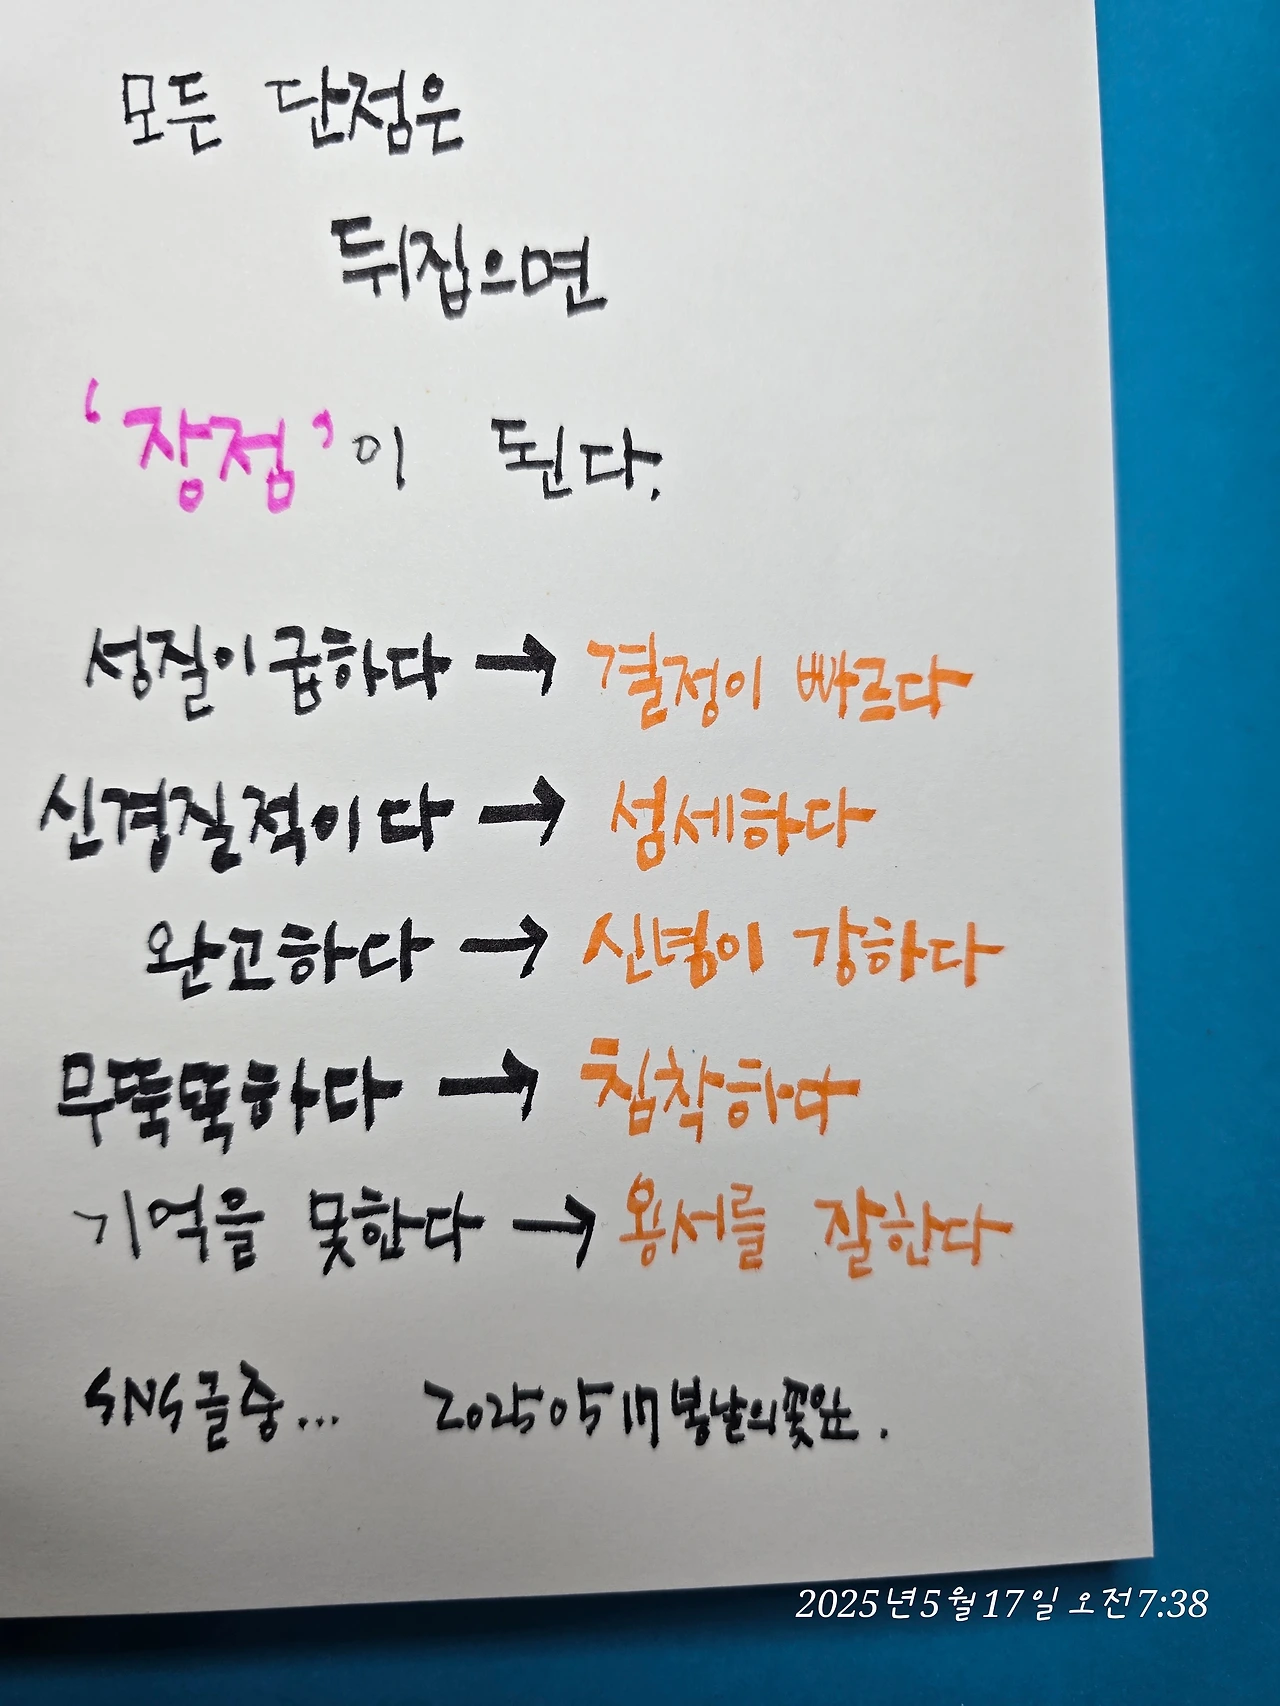 모든 단점은
뒤집으면
'장점'이 된다.
성질이 급하다 → 결정이 빠르다
신경질적이다 → 섬세하다
완고하다 → 신념이 강하다
무뚝뚝하다 → 침착하다
기억을 못한다 → 용서를 잘한다
SNS글중... 20250517 봄날의꽃잎.
2025년5월17일 오전7:38